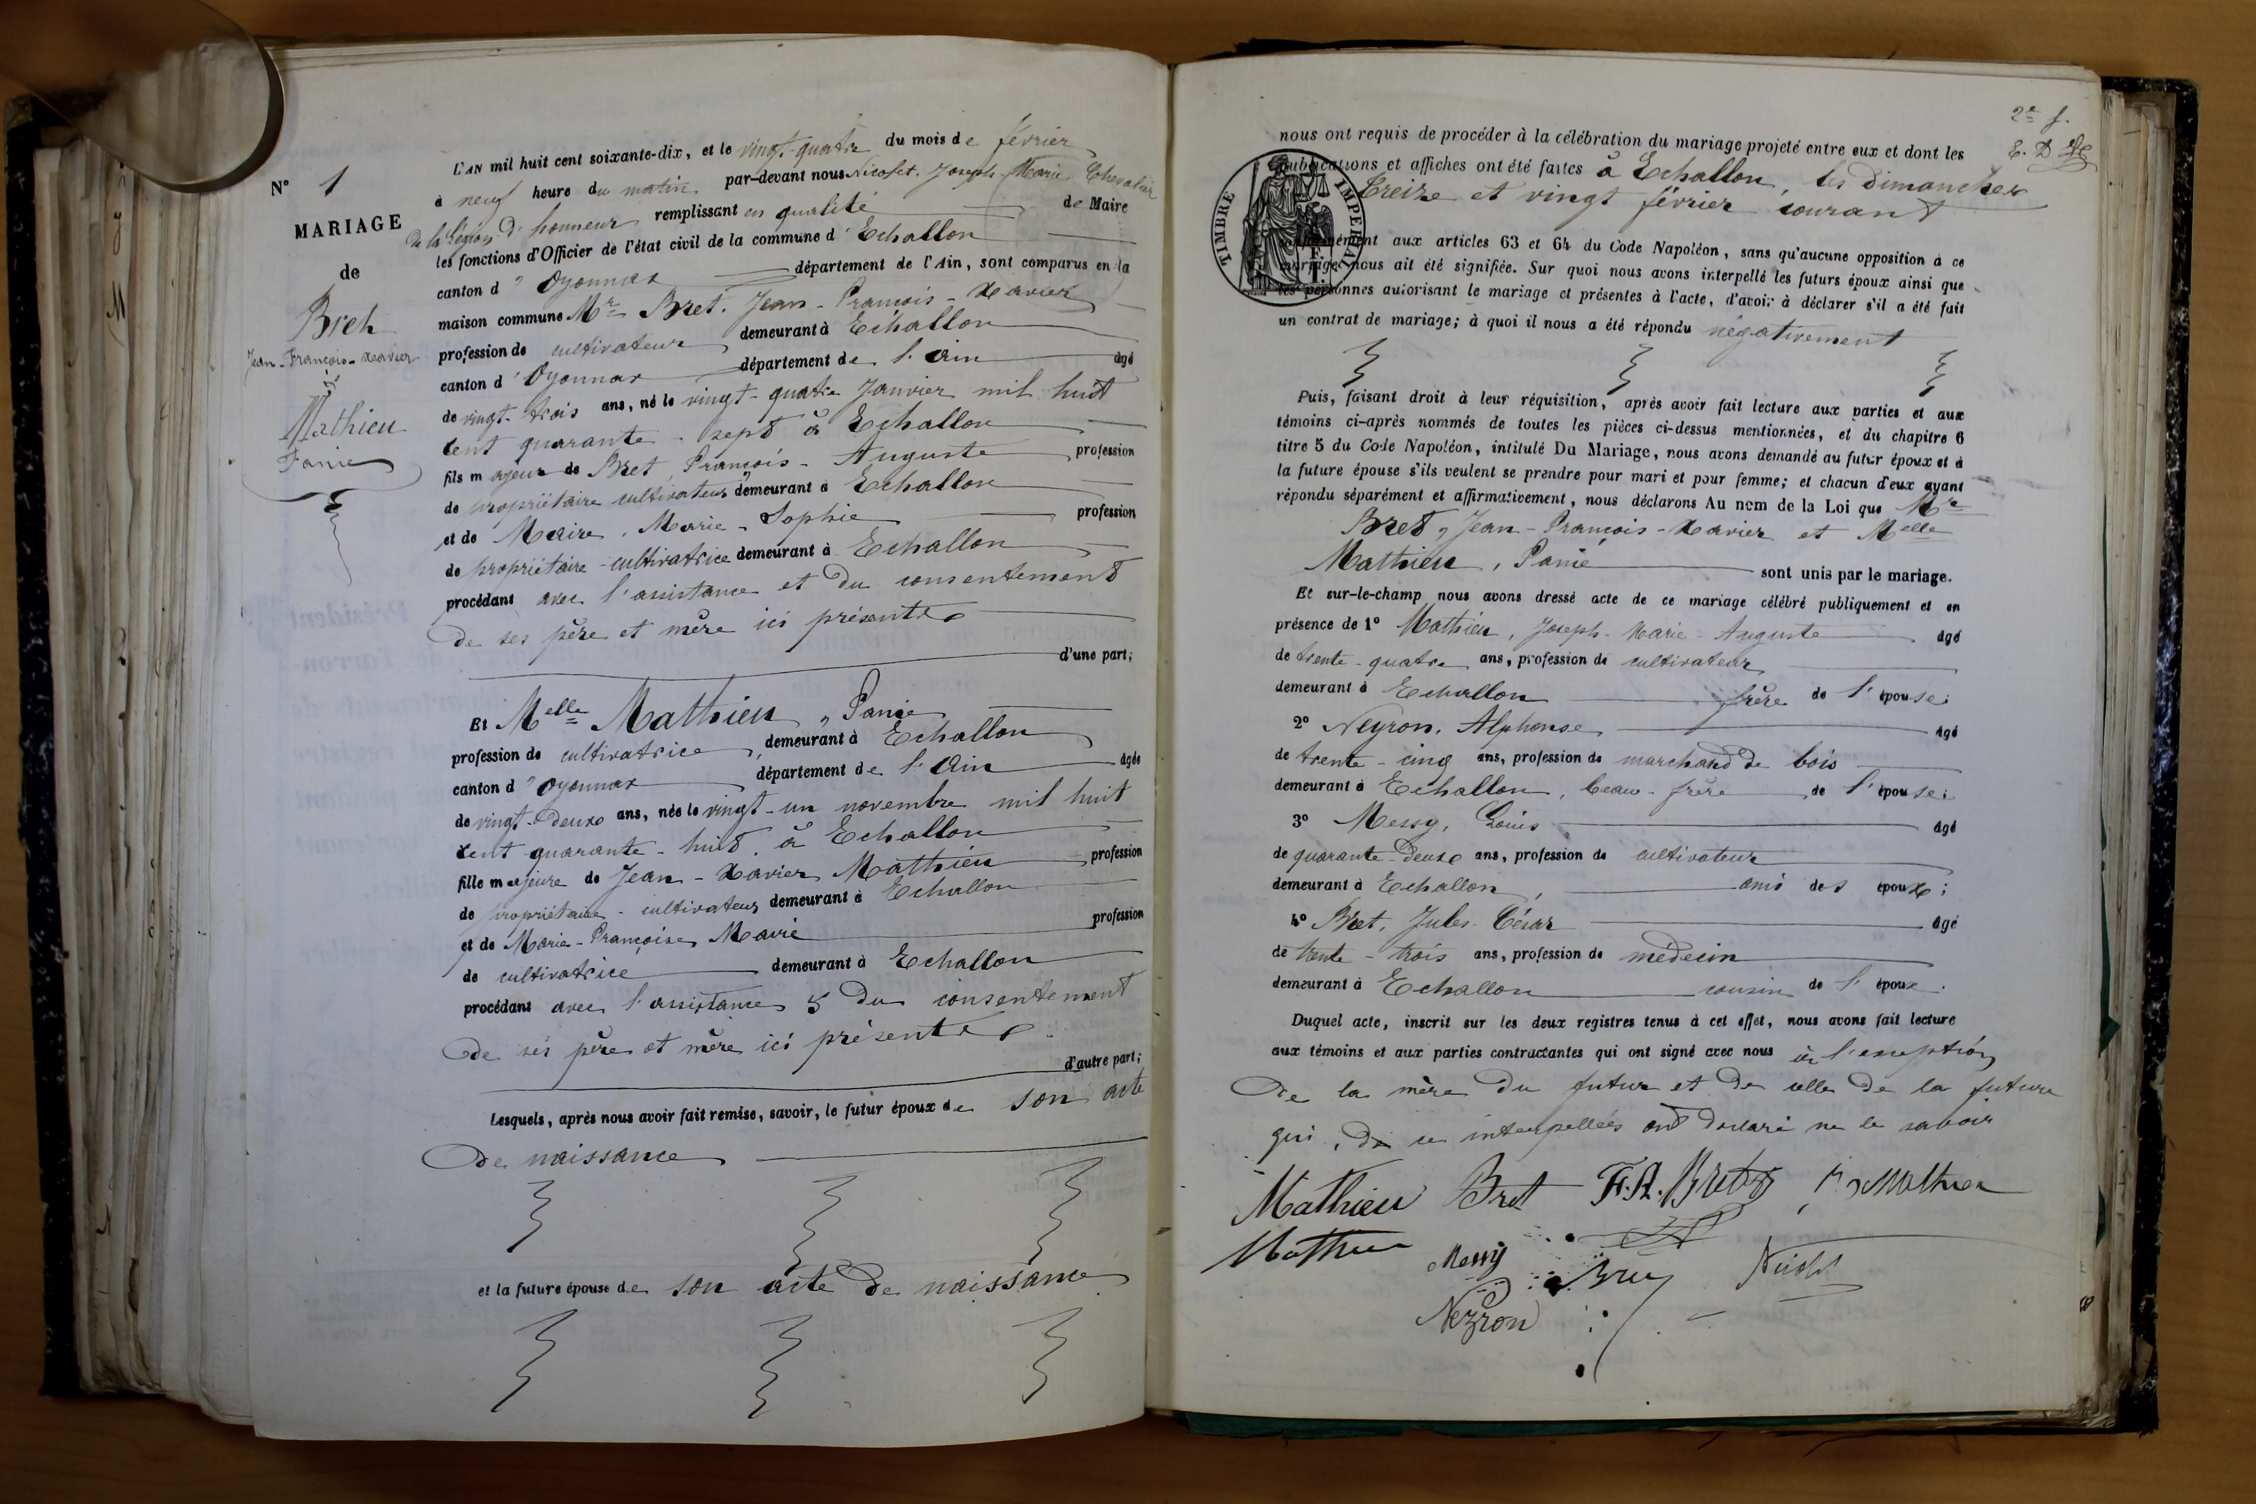 N° 1
MARIAGE
de
Bret
Jean-François-Xavier
&
Mathieu
Fanie
L'AN mil huit cent soixante-dix, et le vingt-quatre du mois de février
à neuf heure du matin par-devant nous Nicolet, Joseph-Marie Chevalier
de la Légion d'honneur remplissant en qualité de Maire
les fonctions d'Officier de l'état civil de la commune d'Echallon
canton d'Oyonnax département de l'Ain, sont comparus en la
maison commune Mr Bret, Jean-François-Xavier
profession de cultivateur demeurant à Echallon
canton d'Oyonnax département de l'Ain âgé
de vingt-trois ans, né le vingt-quatre Janvier mil huit
cent quarante-sept à Echallon
fils majeur de Bret, François-Auguste profession
de propriétaire cultivateur demeurant à Echallon
et de Maire, Marie-Sophie profession
de propriétaire-cultivatrice demeurant à Echallon
procédant avec l'assistance et du consentement
de ses père et mère ici présents
d'une part;
Et Melle Mathieu, Fanie
profession de cultivatrice, demeurant à Echallon
canton d'Oyonnax département de l'Ain âgée
de vingt-deux ans, née le vingt-un novembre mil huit
cent quarante-huit à Echallon
fille majeure de Jean-Xavier Mathieu profession
de propriétaire-cultivateur demeurant à Echallon
et de Marie-Françoise Maire profession
de cultivatrice demeurant à Echallon
procédant avec l'assistance & du consentement
de ses père et mère ici présents
d'autre part;
Lesquels, après nous avoir fait remise, savoir, le futur époux de son acte
de naissance
et la future épouse de son acte de naissance
2e f.
E. D
nous ont requis de procéder à la célébration du mariage projeté entre eux et dont les
publications et affiches ont été faites à Echallon, les dimanches
treize et vingt février courant
TIMBRE IMPERIAL
conformément aux articles 63 et 64 du Code Napoléon, sans qu'aucune opposition à ce
mariage nous ait été signifiée. Sur quoi nous avons interpellé les futurs époux ainsi que
les personnes autorisant le mariage et présentes à l'acte, d'avoir à déclarer s'il a été fait
un contrat de mariage; à quoi il nous a été répondu négativement
Puis, faisant droit à leur réquisition, après avoir fait lecture aux parties et aux
témoins ci-après nommés de toutes les pièces ci-dessus mentionnées, et du chapitre 6
titre 5 du Code Napoléon, intitulé Du Mariage, nous avons demandé au futur époux et à
la future épouse s'ils veulent se prendre pour mari et pour femme; et chacun d'eux ayant
répondu séparément et affirmativement, nous déclarons Au nom de la Loi que Mr
Bret, Jean-François-Xavier et Melle
Mathieu, Fanie sont unis par le mariage.
Et sur-le-champ nous avons dressé acte de ce mariage célébré publiquement et en
présence de 1° Mathieu, Joseph-Marie-Auguste âgé
de trente-quatre ans, profession de cultivateur
demeurant à Echallon frère de l'épouse;
2° Neyron, Alphonse âgé
de trente-cinq ans, profession de marchand de bois
demeurant à Echallon, beau-frère de l'épouse;
3° Messy, Louis âgé
de quarante-deux ans, profession de cultivateur
demeurant à Echallon, ami des époux;
4° Bret, Jules César âgé
de trente-trois ans, profession de médecin
demeurant à Echallon cousin de l'époux.
Duquel acte, inscrit sur les deux registres tenus à cet effet, nous avons fait lecture
aux témoins et aux parties contractantes qui ont signé avec nous à l'exception
de la mère du futur et de celle de la future
qui, de ce interpellées ont déclaré ne le savoir
Mathieu Bret F. A. Bret Mathieu
Mathieu Messy Bret Nicolet
Neyron